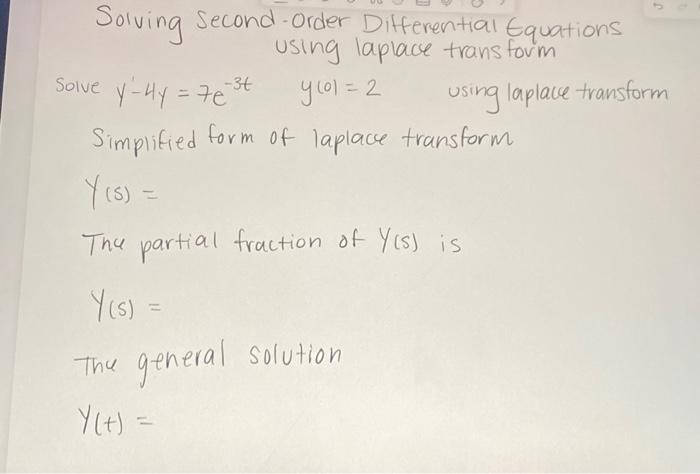 Solving Second-Order Differential Equations
using laplace transform
Solve y'-4y = 7e^-3t y(0) = 2 using laplace transform
Simplified form of laplace transform
Y(s) =
The partial fraction of Y(s) is
Y(s) =
The general solution
Y(t) =